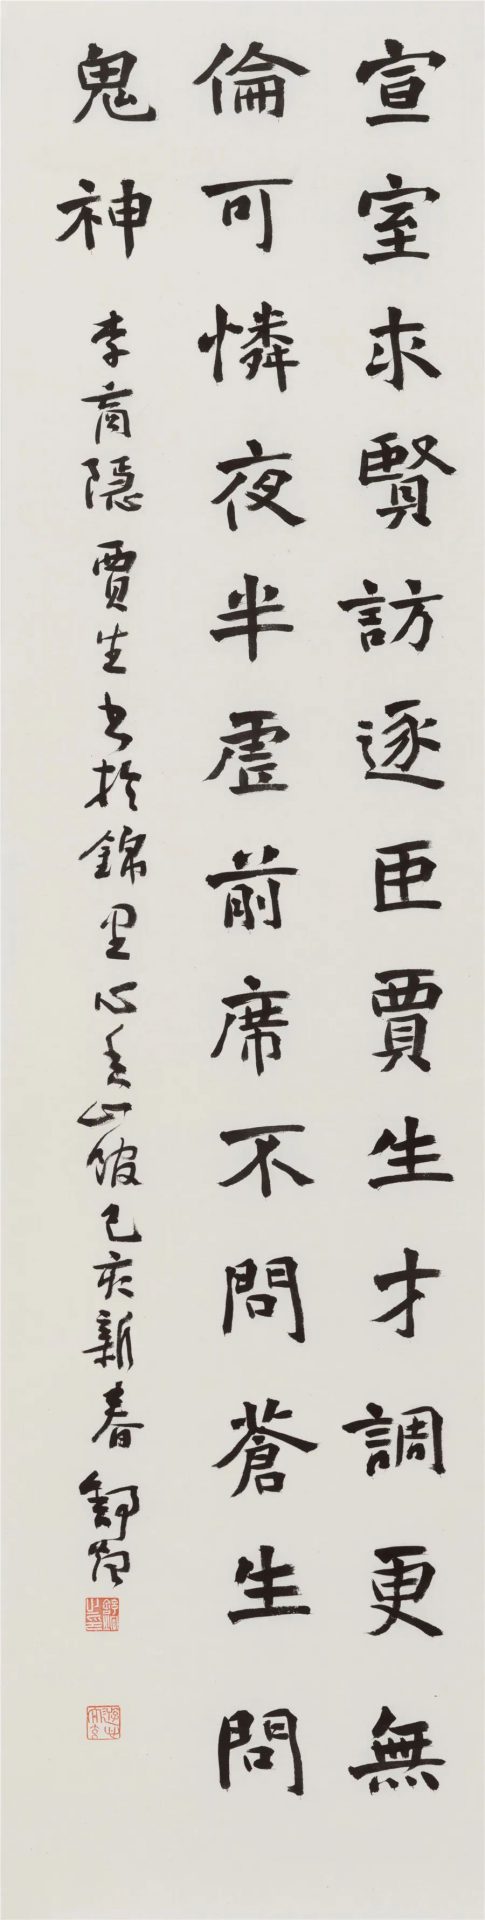 宣室求賢訪逐臣賈生才調更無
倫可憐夜半虛前席不問蒼生問
鬼神
李商隱賈生書於錦里心香山館己亥新春舒炯